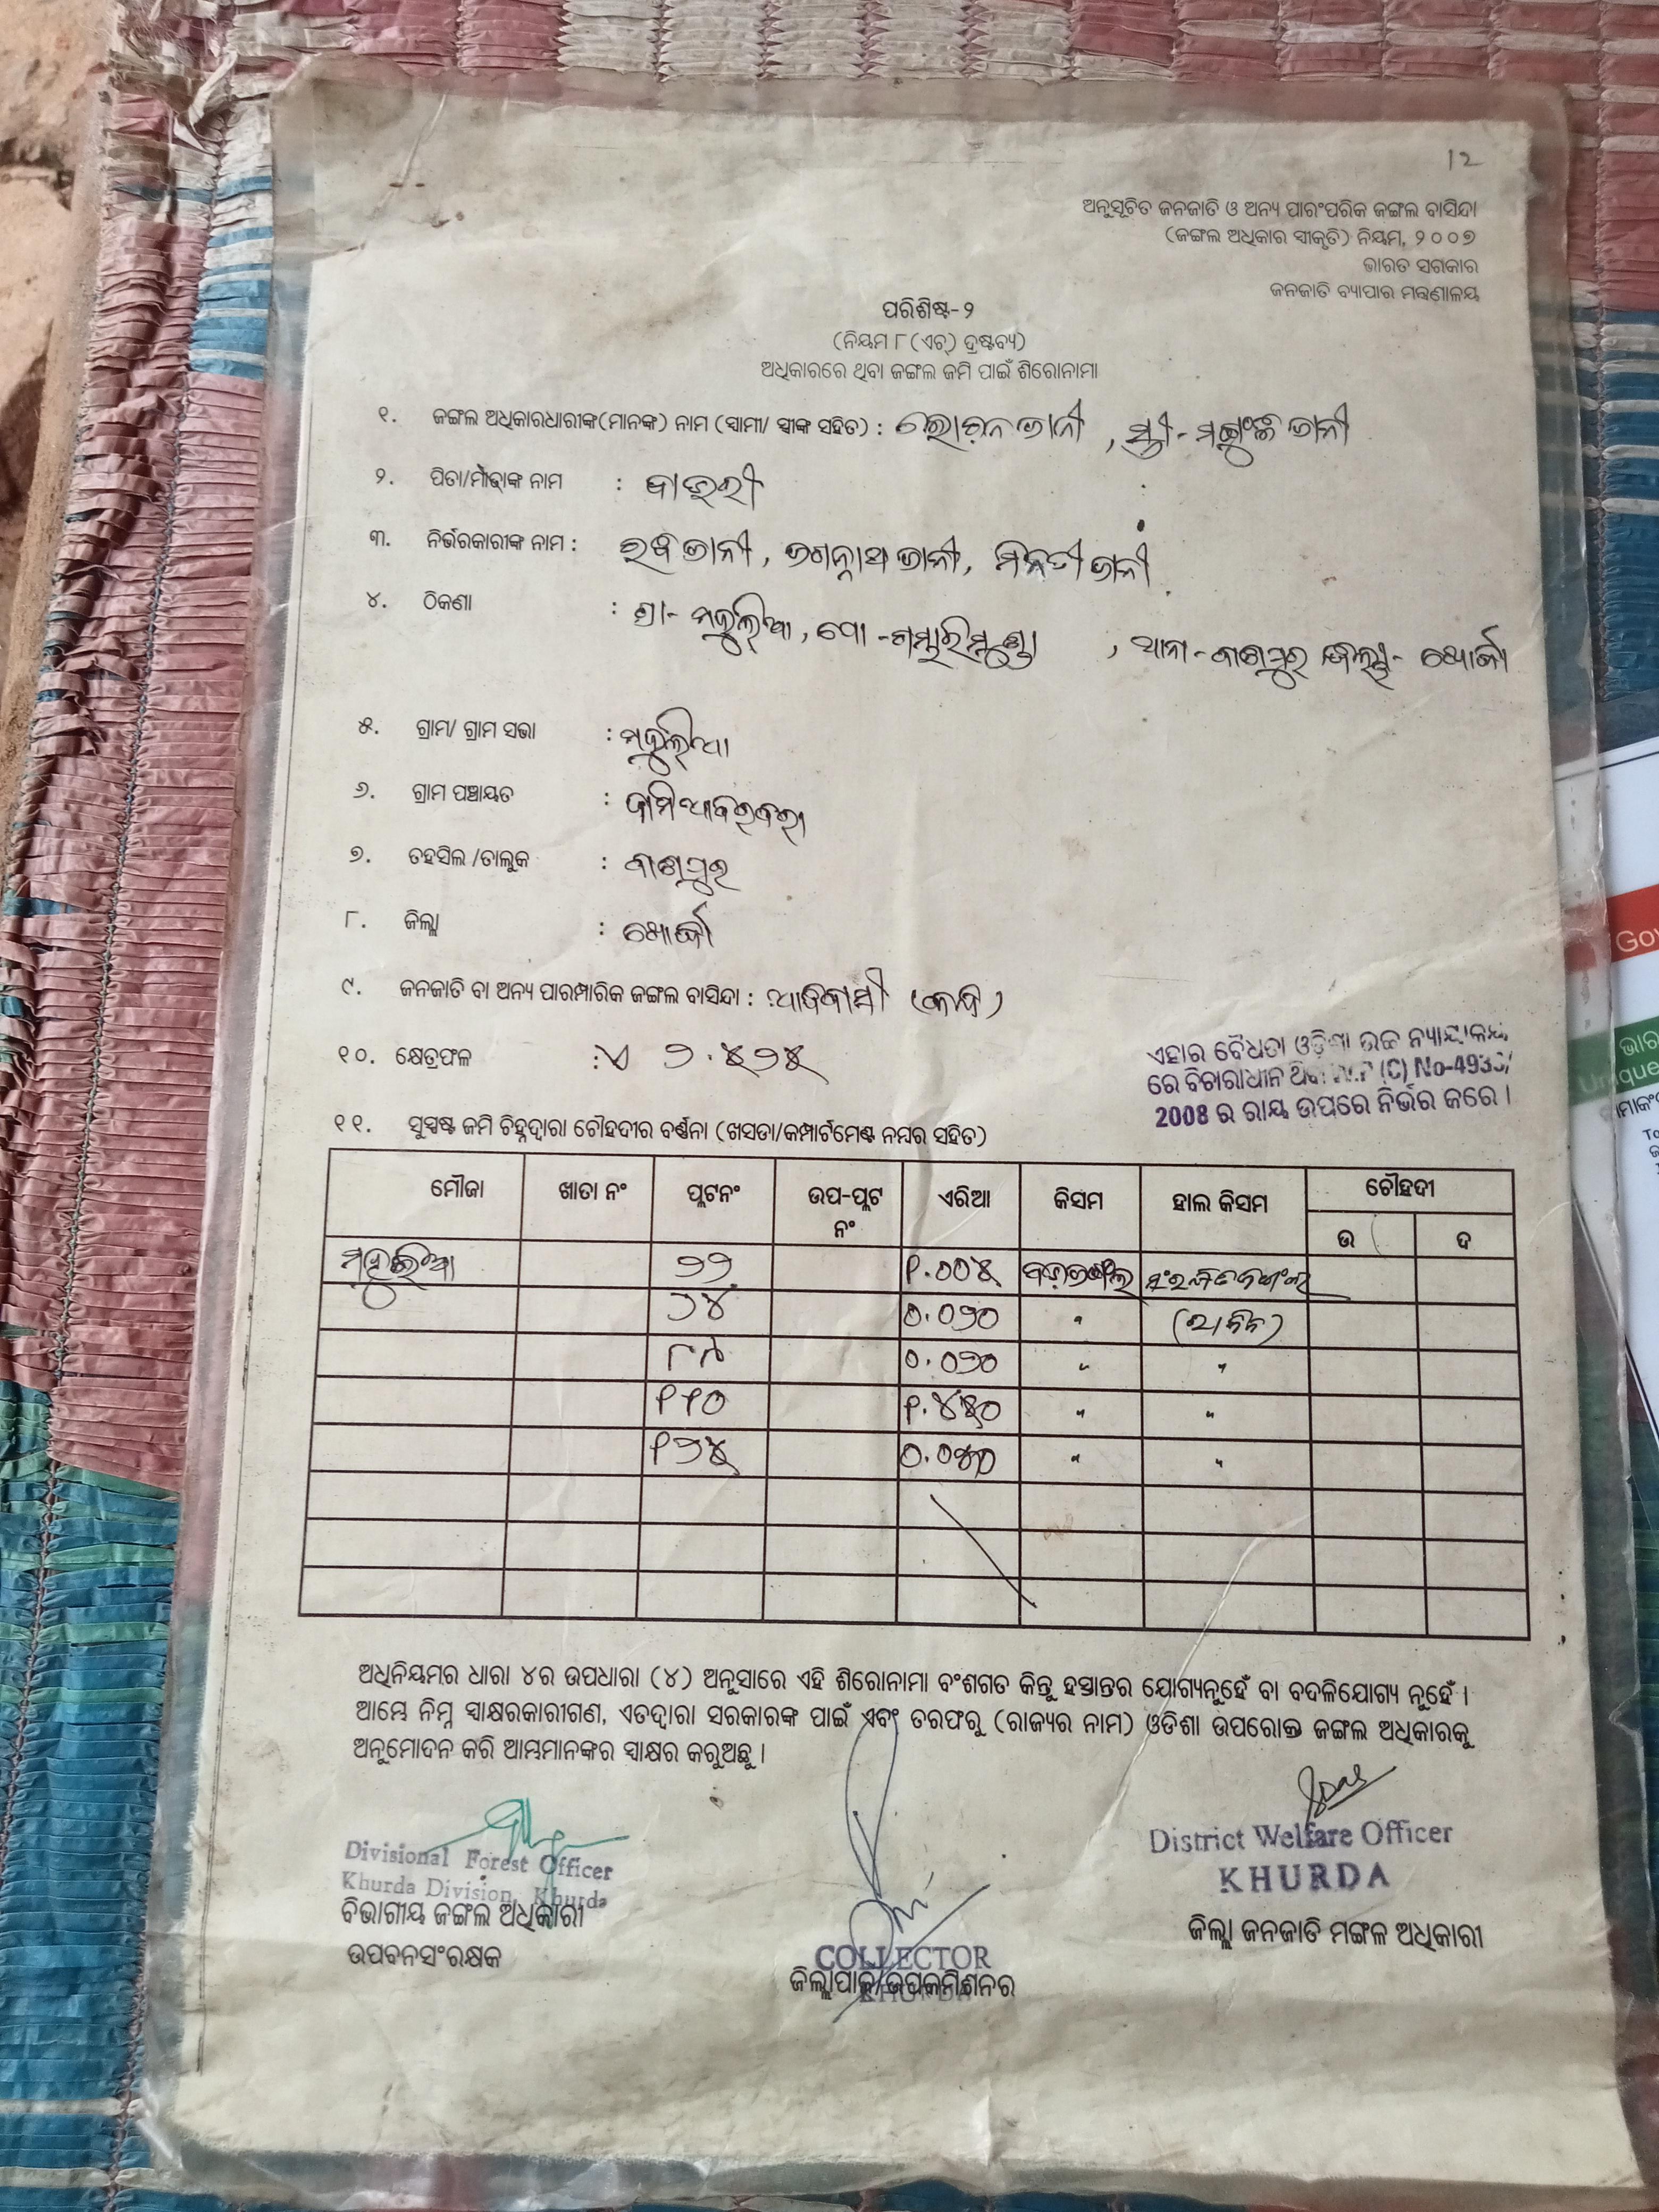 12
ଅନୁସୂଚିତ ଜନଜାତି ଓ ଅନ୍ୟ ପାରଂପରିକ ଜଙ୍ଗଲ ବାସିନ୍ଦା
(ଜଙ୍ଗଲ ଅଧିକାର ସ୍ୱୀକୃତି) ନିୟମ, ୨୦୦୭
ଭାରତ ସରକାର
ଜନଜାତି ବ୍ୟାପାର ମନ୍ତ୍ରଣାଳୟ
ପରିଶିଷ୍ଟ-୨
(ନିୟମ ୮(ଏଚ୍) ଦ୍ରଷ୍ଟବ୍ୟ)
ଅଧିକାରରେ ଥିବା ଜଙ୍ଗଲ ଜମି ପାଇଁ ଶିରୋନାମା
୧. ଜଙ୍ଗଲ ଅଧିକାରଧାରୀଙ୍କ(ମାନଙ୍କ) ନାମ (ସ୍ୱାମୀ/ ସ୍ତ୍ରୀଙ୍କ ସହିତ) : ଜାନୀ , ସ୍ତ୍ରୀ - ଜାନୀ
୨. ପିତା/ମାତାଙ୍କ ନାମ :
୩. ନିର୍ଭରକାରୀଙ୍କ ନାମ : ଜାନୀ, ଜଗନ୍ନାଥ ଜାନୀ, ମିନତୀ ଜାନୀ
୪. ଠିକଣା : ଗ୍ରା- , ପୋ - ଗମ୍ଭାରିମୁଣ୍ଡା , ଥାନା - ବାଣପୁର ଜିଲ୍ଲା - ଖୋର୍ଦ୍ଧା
୫. ଗ୍ରାମ/ ଗ୍ରାମ ସଭା :
୬. ଗ୍ରାମ ପଞ୍ଚାୟତ :
୭. ତହସିଲ /ତାଲୁକ : ବାଣପୁର
୮. ଜିଲ୍ଲା : ଖୋର୍ଦ୍ଧା
୯. ଜନଜାତି ବା ଅନ୍ୟ ପାରମ୍ପାରିକ ଜଙ୍ଗଲ ବାସିନ୍ଦା : ଆଦିବାସୀ (କନ୍ଧ)
୧୦. କ୍ଷେତ୍ରଫଳ : ଏ ୨.୫୨୫
ଏହାର ବୈଧତା ଓଡ଼ିଶା ଉଚ୍ଚ ନ୍ୟାୟାଳୟ
ରେ ବିଚାରାଧୀନ ଥିବା (C) No-4933/
2008 ର ରାୟ ଉପରେ ନିର୍ଭର କରେ ।
୧୧. ସୁସ୍ପଷ୍ଟ ଜମି ଚିହ୍ନଦ୍ୱାରା ଚୌହଦୀର ବର୍ଣ୍ଣନା (ଖସଡା/କମ୍ପାର୍ଟମେଣ୍ଟ ନମ୍ବର ସହିତ)
ମୌଜା ଖାତା ନଂ ପ୍ଲଟନଂ ଉପ-ପ୍ଲଟ ନଂ ଏରିଆ କିସମ ହାଲ କିସମ ଚୌହଦୀ
ଉ ଦ
୨୨ ୧.୦୦୫
୨୪ ୦.୦୨୦ "
୮୯ ୦.୦୨୦ " "
୧୧୦ " "
୧୨୫ " "
ଅଧିନିୟମର ଧାରା ୪ର ଉପଧାରା (୪) ଅନୁସାରେ ଏହି ଶିରୋନାମା ବଂଶଗତ କିନ୍ତୁ ହସ୍ତାନ୍ତର ଯୋଗ୍ୟନୁହେଁ ବା ବଦଳିଯୋଗ୍ୟ ନୁହେଁ ।
ଆମ୍ଭେ ନିମ୍ନ ସ୍ୱାକ୍ଷରକାରୀଗଣ, ଏତଦ୍ୱାରା ସରକାରଙ୍କ ପାଇଁ ଏବଂ ତରଫରୁ (ରାଜ୍ୟର ନାମ) ଓଡିଶା ଉପରୋକ୍ତ ଜଙ୍ଗଲ ଅଧିକାରକୁ
ଅନୁମୋଦନ କରି ଆମ୍ଭମାନଙ୍କର ସ୍ୱାକ୍ଷର କରୁଅଛୁ ।
Divisional Forest Officer
Khurda Division, Khurda
ବିଭାଗୀୟ ଜଙ୍ଗଲ ଅଧିକାରୀ
ଉପବନସଂରକ୍ଷକ
COLLECTOR
KHURDA
ଜିଲ୍ଲାପାଳ/ଉପକମିଶନର
District Welfare Officer
KHURDA
ଜିଲ୍ଲା ଜନଜାତି ମଙ୍ଗଳ ଅଧିକାରୀ